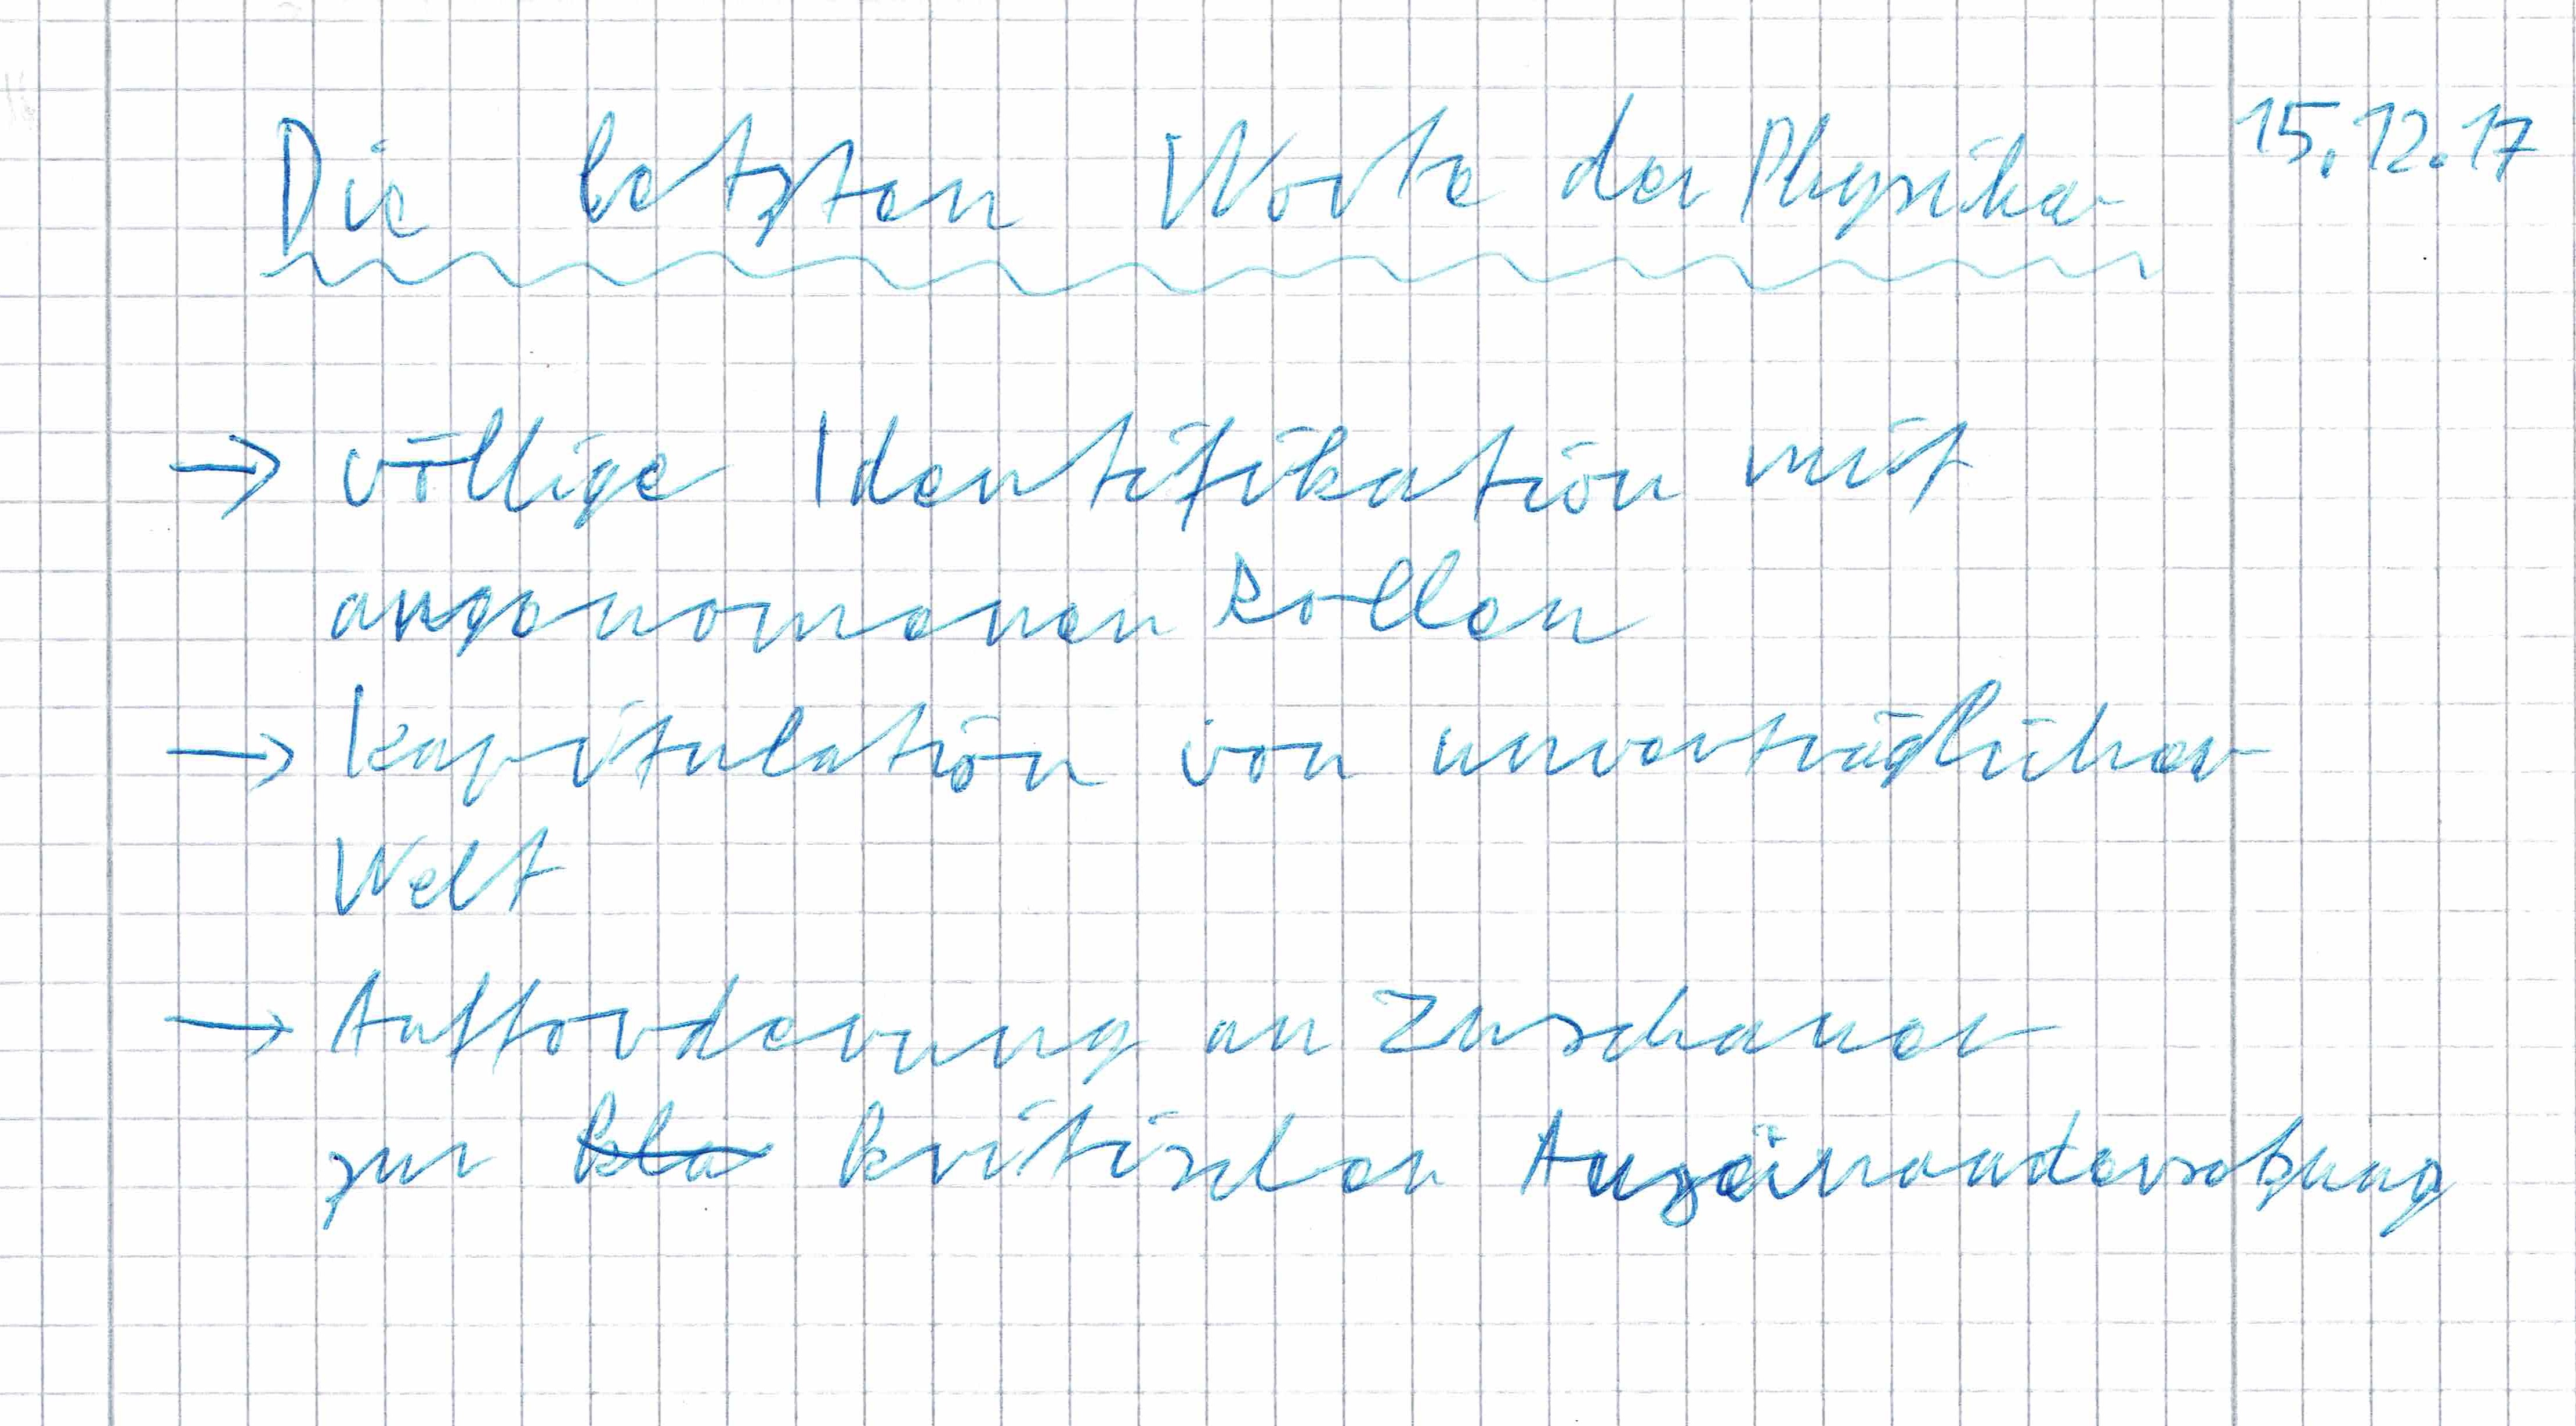 Die letzten Worte der Physiker 15.12.17
→ völlige Identifikation mit
angenomenen Rollen
→ Kapitulation von unverträglicher
Welt
→ Aufforderung an Zuschauer
zur kla kritischen Auseinandersetzung